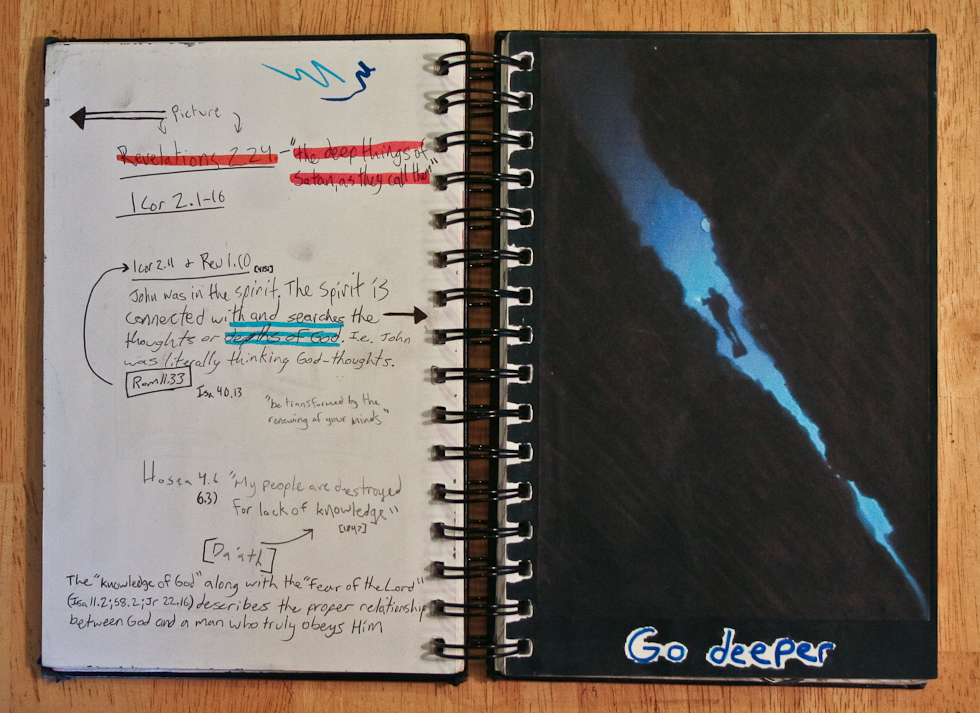 Picture
Revelations 2.24 - "the deep things of
Satan, as they call them"
1 Cor 2.1-16
1 Cor 2.11 & Rev 1.10
John was in the spirit. The Spirit is
connected with and searches the
thoughts or depths of God. I.e. John
was literally thinking God-thoughts.
Rom 11.33
Isa 40.13
"be transformed by the
renewing of your minds"
Hosea 4.6 "My people are destroyed
6.3) for lack of knowledge"
[1847]
[Da'ath]
The "knowledge of God" along with the "fear of the Lord"
(Isa 11.2; 58.2; Jr 22.16) describes the proper relationship
between God and a man who truly obeys Him
Go deeper